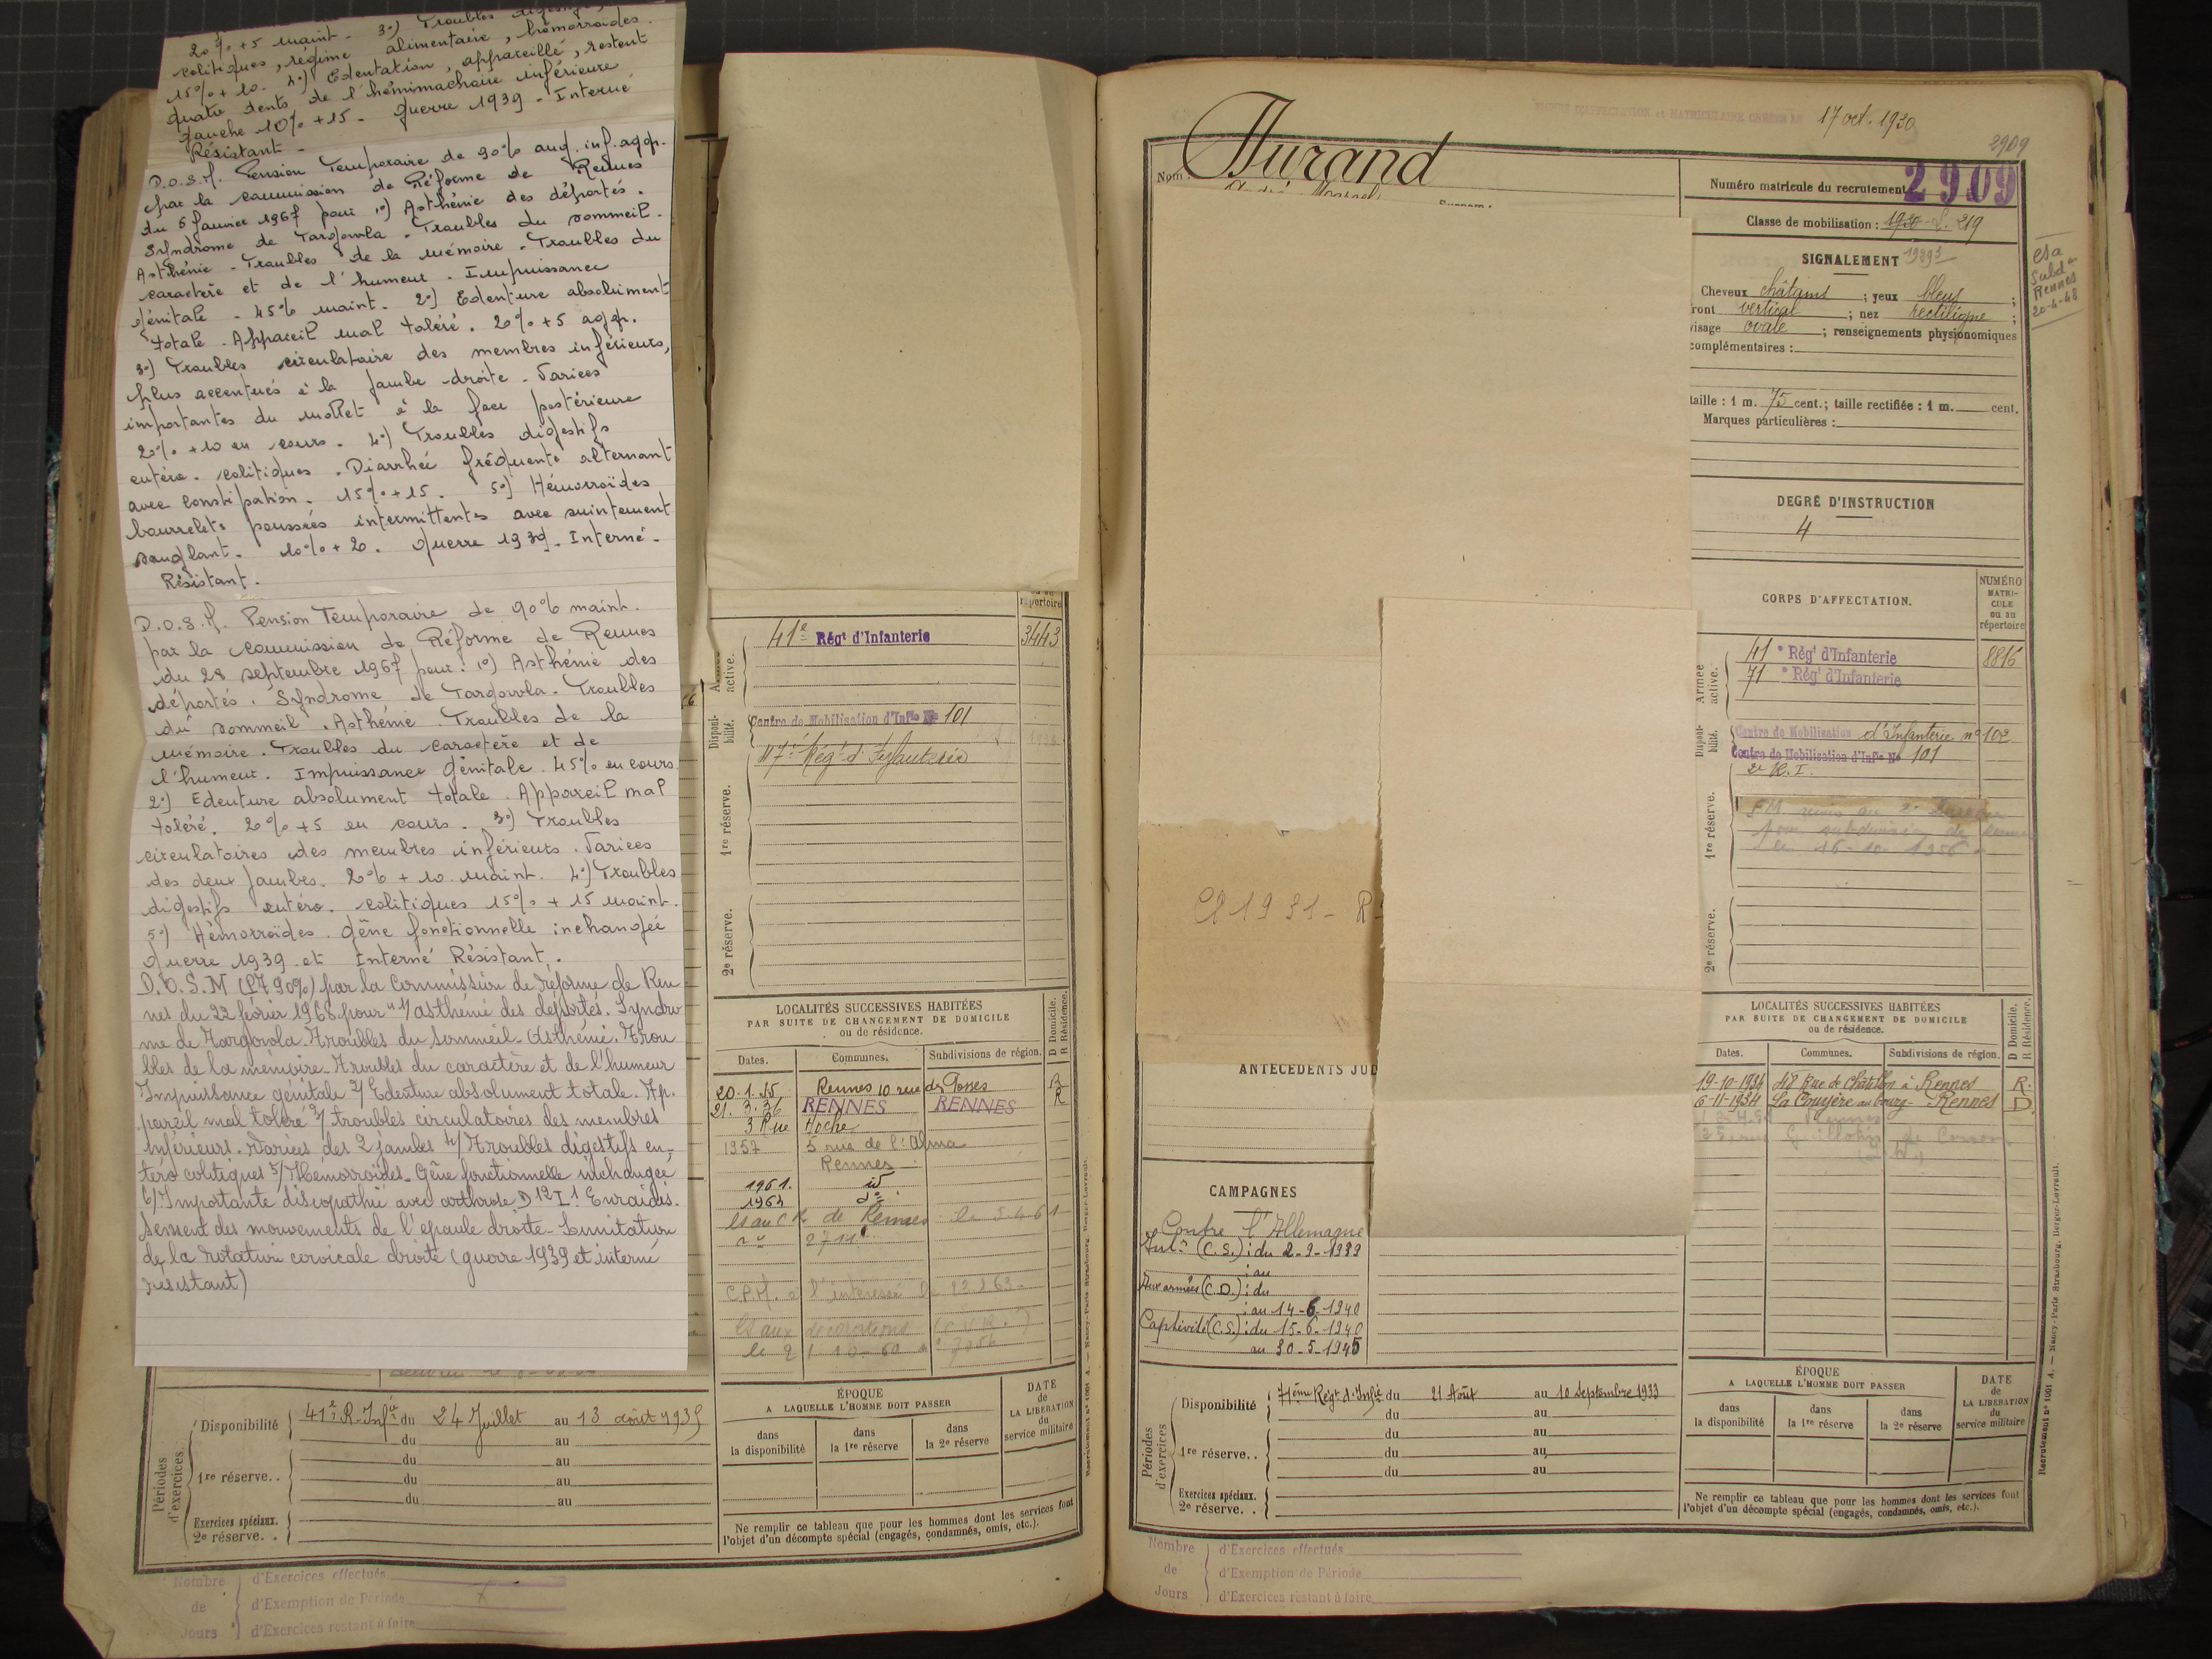 20% + 5 maint. 3°) Troubles digestifs,
colitiques, régime alimentaire, hémorroïdes.
15% + 10. 4°) Edentation, appareillé, restent
quatre dents de l'hémimachoire inférieure
gauche 10% + 15. Guerre 1939 - Interné
Résistant -
D.O.S.M. Pension Temporaire de 90% aug. inf. agg.
par la commission de Réforme de Rennes
du 5 janvier 1967 pour 1°) Asthénie des déportés.
Syndrome de Targowla - Troubles du sommeil.
Asthénie - Troubles de la mémoire - Troubles du
caractère et de l'humeur - Impuissance
génitale - 45% maint. 2°) Edenture absolument
totale - Appareil mal toléré. 20% + 5 agg.
3°) Troubles circulatoire des membres inférieurs,
plus accentués à la jambe droite - Varices
importantes du mollet à la face postérieure
20% + 10 en cours. 4°) Troubles digestifs
entéro. colitiques. Diarrhée fréquente alternant
avec constipation. 15% + 15. 5°) Hémorroïdes
bourrelets poussées intermittentes avec suintement
sanglant. 10% + 20. Guerre 1939. Interné -
Résistant.
D.O.S.M. Pension Temporaire de 90% maint.
par la commission de Réforme de Rennes
du 28 septembre 1967 pour : 1°) Asthénie des
déportés. Syndrome de Targowla. Troubles
du sommeil. Asthénie. Troubles de la
mémoire. Troubles du caractère et de
l'humeur. Impuissance génitale. 45% en cours
2°) Edenture absolument totale. Appareil mal
toléré. 20% + 5 en cours. 3°) Troubles
circulatoires des membres inférieurs. Varices
des deux jambes. 20% + 10 maint. 4°) Troubles
digestifs entéro. colitiques 15% + 15 maint.
5°) Hémorroïdes. Gêne fonctionnelle inchangée
Guerre 1939 et Interné Résistant.
D.O.S.M (PT 90%) par la Commission de réforme de Ren
nes du 22 février 1968 pour "1/ asthénie des déportés. Syndro
me de Targovola. Troubles du sommeil. Asthénie. Trou
bles de la mémoire. Troubles du caractère et de l'humeur
Impuissance génitale 2/ Edenture absolument totale. Ap.
pareil mal toléré 3/ troubles circulatoires des membres
inférieurs. Varices des 2 jambes 4/ Troubles digestifs en-
téro colitiques 5/ Hémorroïdes. Gêne fonctionnelle inchangée
6/ Importante discopathie avec arthrose D12 L1 Enraidis.
sement des mouvements de l'epaule droite. Limitation
de la rotation cervicale droite (guerre 1939 et interné
résistant)
répertoire
Armée active.
41e Régt d'Infanterie 3443
Disponibilité.
Centre de Mobilisation d'Infie No 101
117e Régt d'Infanterie
1re réserve.
2e réserve.
LOCALITÉS SUCCESSIVES HABITÉES
PAR SUITE DE CHANGEMENT DE DOMICILE
ou de résidence.
D Domicile.
R Résidence.
Dates. Communes. Subdivisions de région.
20-1-35 Rennes 10 rue des Fosses R
21.3.36 RENNES RENNES R
3 Rue Hoche
1957 5 rue de l'Alma
Rennes
1961. id
1963 d°
Es au CR de Rennes le 5-4-61
n° 2711
C.P.M. à l'intéressé le 22.2.63.
Es aux décorations (C.V.R.)
Périodes d'exercices
Disponibilité 41e R-Infie du 24 Juillet au 13 août 1935
du au
du au
1re réserve.. du au
du au
Exercices spéciaux.
2e réserve..
ÉPOQUE
A LAQUELLE L'HOMME DOIT PASSER
DATE
de
LA LIBÉRATION
du
service militaire
dans
la disponibilité
dans
la 1re réserve
dans
la 2e réserve
Ne remplir ce tableau que pour les hommes dont les services font
l'objet d'un décompte spécial (engagés, condamnés, omis, etc.).
Nombre
de
Jours
d'Exercices effectués
d'Exemption de Période
d'Exercices restant à faire
Recrutement n° 1001 A. — Nancy-Paris Strasbourg, Berger-Levrault.
17 oct. 1930
2909
Nom : Durand
André Marcel Surnom :
Numéro matricule du recrutement 2909
Classe de mobilisation : 1930 219
SIGNALEMENT
Cheveux châtains ; yeux bleus ;
front vertical ; nez rectiligne ;
visage ovale ; renseignements physionomiques
complémentaires :
taille : 1 m. 75 cent.; taille rectifiée : 1 m. cent.
Marques particulières :
esa
Subdon
Rennes
20-4-48
DEGRÉ D'INSTRUCTION
4
CORPS D'AFFECTATION.
NUMÉRO
MATRI-
CULE
ou au
répertoire
Armée active.
41e Régt d'Infanterie 8816
71e Régt d'Infanterie
Disponibilité.
Centre de Mobilisation d'Infanterie n° 102
Centre de Mobilisation d'Infie No 101
2e R.I.
1re réserve.
pour subdivision de Rennes
2e réserve.
Cl 1931 - R
ANTÉCÉDENTS JUD
CAMPAGNES
Contre l'Allemagne
Intre (C.S.): du 2-9-1939
: au
Aux armées (C.D.): du
: au 14-6-1940
Captivité (C.S.): du 15-6-1940
au 30-5-1945
LOCALITÉS SUCCESSIVES HABITÉES
PAR SUITE DE CHANGEMENT DE DOMICILE
ou de résidence.
D Domicile.
R Résidence.
Dates. Communes. Subdivisions de région.
19-10-1934 48 Rue de Châtillon à Rennes R.
6-11-1934 La Couyère au bourg - Rennes D.
Périodes d'exercices
Disponibilité 71ème Régt d'Infie du 21 Août au 10 Septembre 1933
du au
du au
1re réserve.. du au
du au
Exercices spéciaux.
2e réserve..
ÉPOQUE
A LAQUELLE L'HOMME DOIT PASSER
DATE
de
LA LIBÉRATION
du
service militaire
dans
la disponibilité
dans
la 1re réserve
dans
la 2e réserve
Ne remplir ce tableau que pour les hommes dont les services font
l'objet d'un décompte spécial (engagés, condamnés, omis, etc.).
Nombre
de
Jours
d'Exercices effectués
d'Exemption de Période
d'Exercices restant à faire
Recrutement n° 1001 A. — Nancy-Paris Strasbourg, Berger-Levrault.